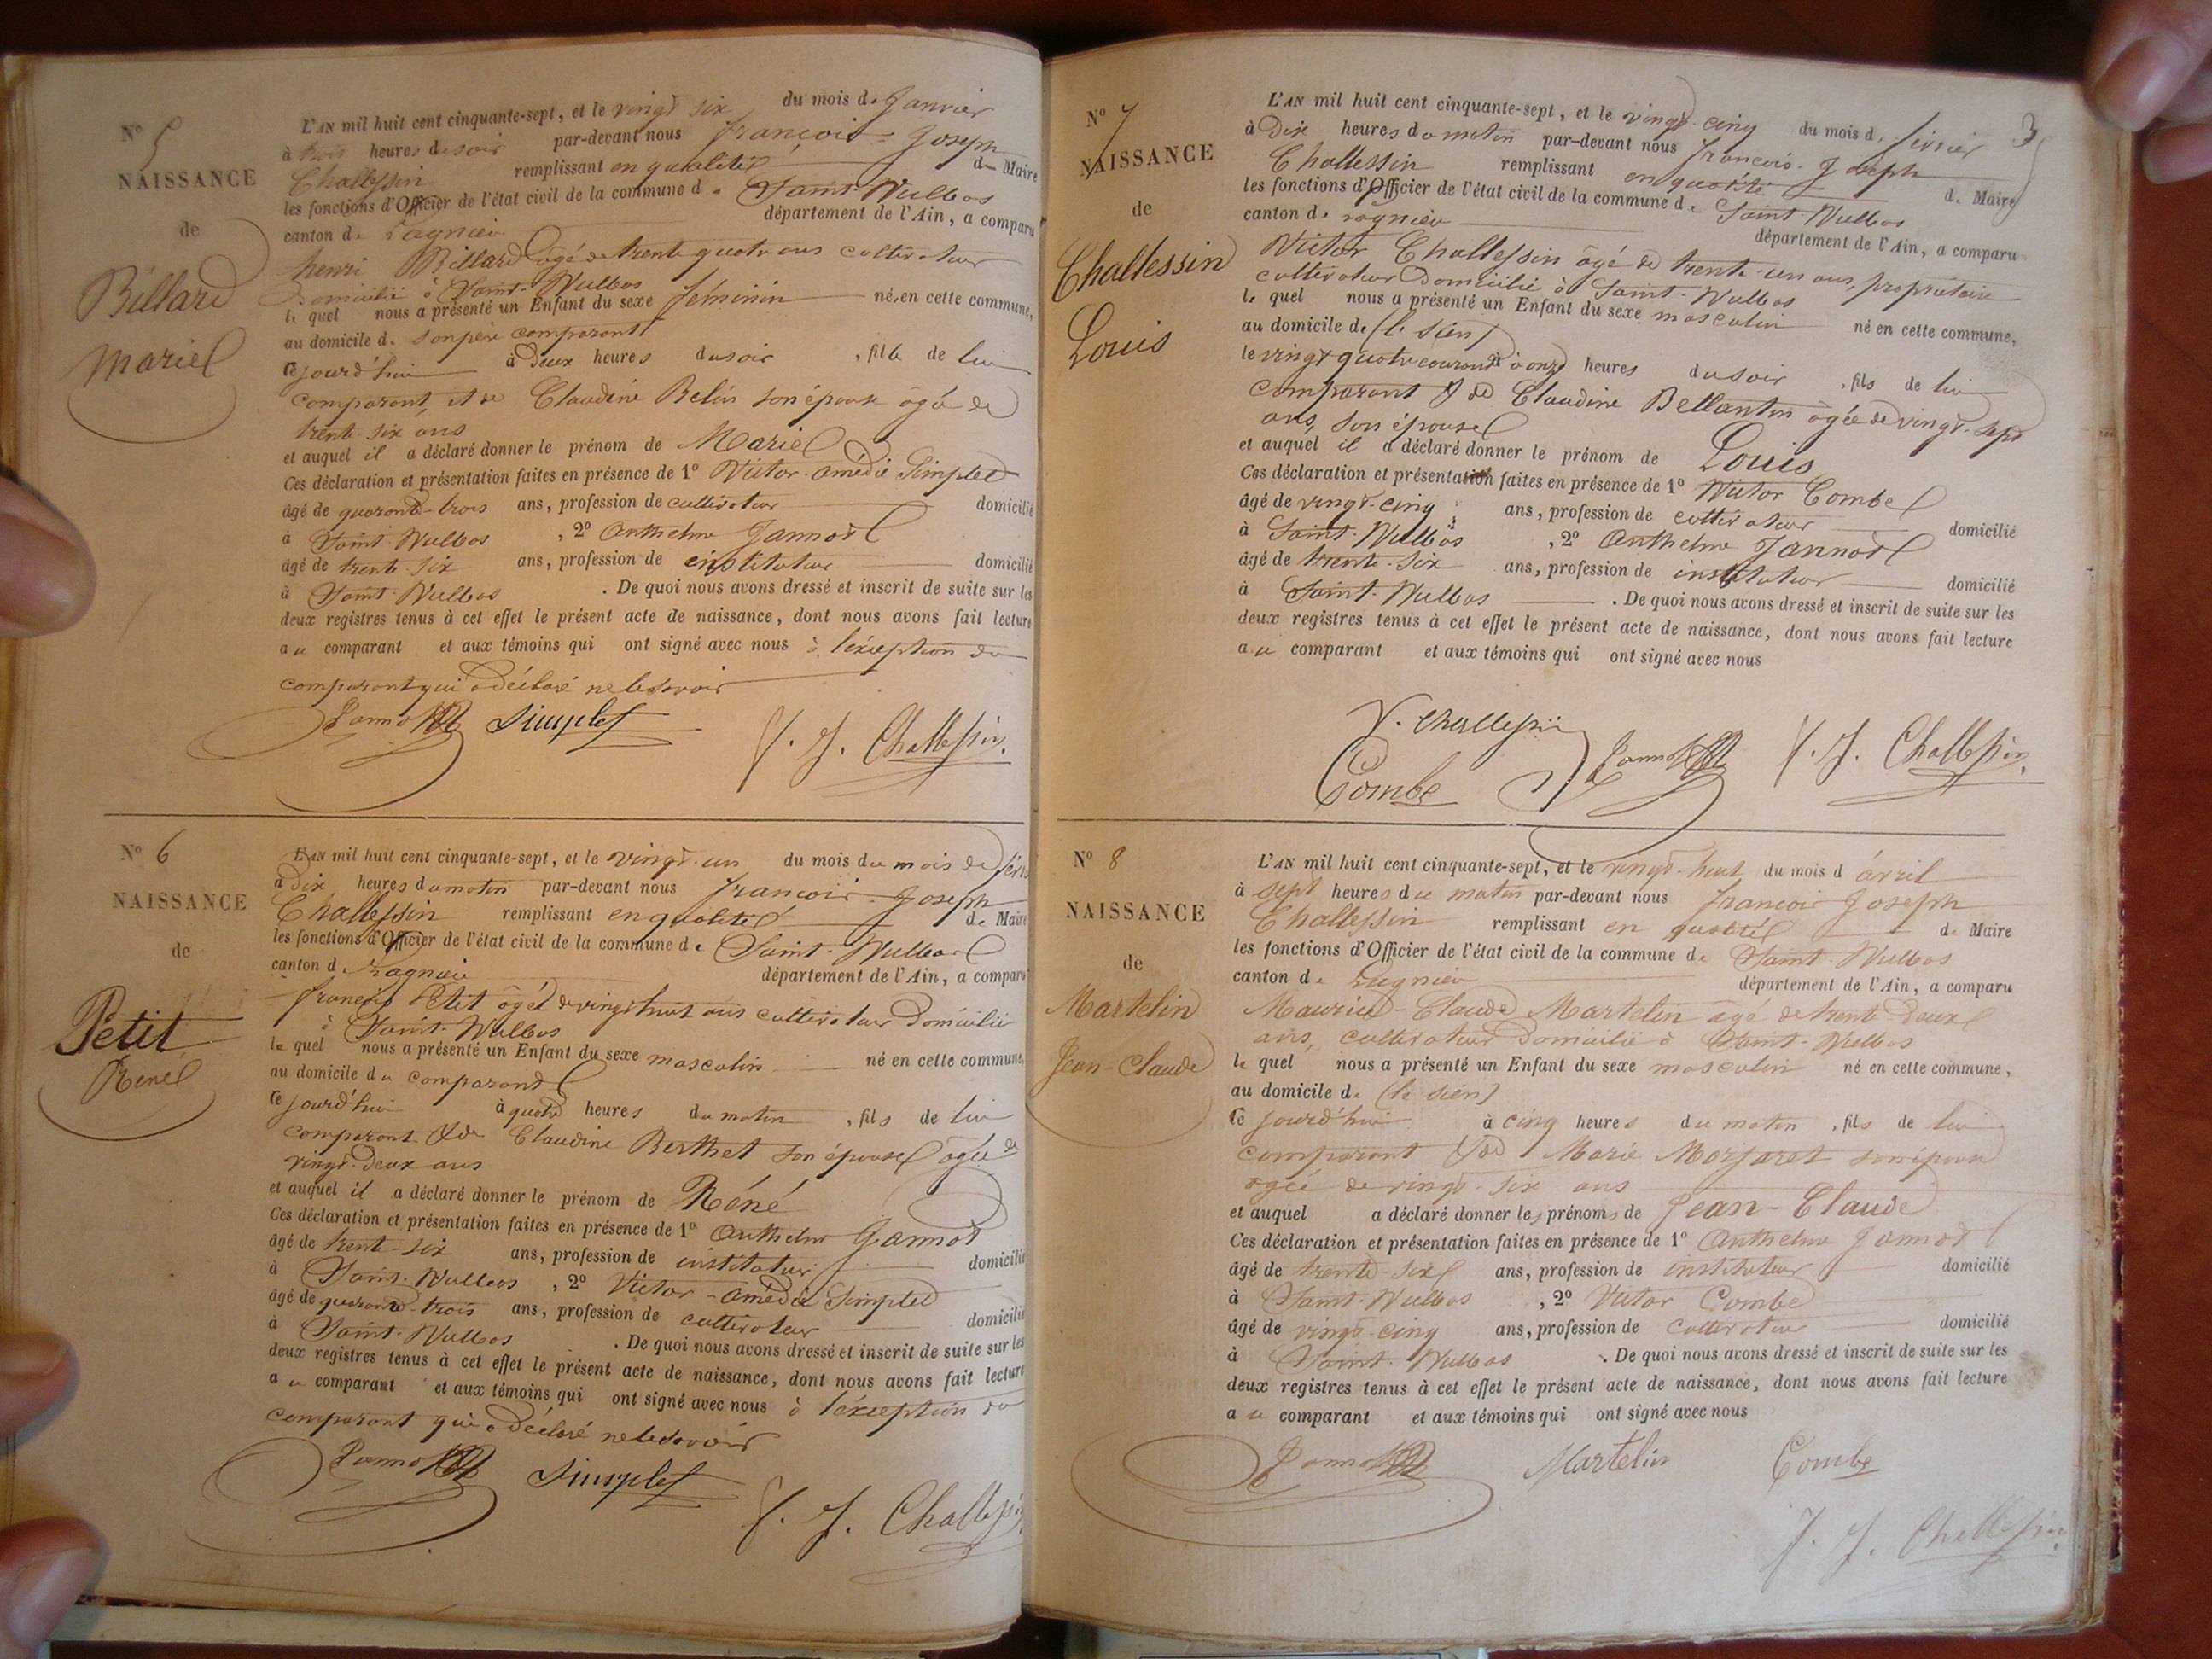 N° 5
NAISSANCE
de
Billard
Marie
L'AN mil huit cent cinquante-sept, et le vingt six du mois de Janvier
à trois heures du soir par-devant nous François-Joseph
Challessin remplissant en qualité de Maire
les fonctions d'Officier de l'état civil de la commune de Saint-Vulbas
canton de Lagnieu département de l'Ain, a comparu
henri Billard âgé de trente quatre ans cultivateur
domicilié à Saint-Vulbas
le quel nous a présenté un Enfant du sexe féminin née en cette commune,
au domicile de son père comparant
ce jourd'hui à deux heures du soir, fille de lui
comparant, et de Claudine Belin son épouse âgée de
trente six ans
et auquel il a déclaré donner le prénom de Marie
Ces déclaration et présentation faites en présence de 1° Victor-amédée Simplet
âgé de quarante-trois ans, profession de cultivateur domicilié
à Saint-Vulbas, 2° Anthelme Jannot
âgé de trente-six ans, profession de instituteur domicilié
à Saint-Vulbas. De quoi nous avons dressé et inscrit de suite sur les
deux registres tenus à cet effet le présent acte de naissance, dont nous avons fait lecture
au comparant et aux témoins qui ont signé avec nous à l'éxception du
comparant qui a déclaré ne le savoir
Jannot Simplet f. J. Challessin
N° 6
NAISSANCE
de
Petit
Réné
L'AN mil huit cent cinquante-sept, et le vingt-un du mois du mois de févri
à dix heures du matin par-devant nous François-Joseph
Challessin remplissant en qualité de Maire
les fonctions d'Officier de l'état civil de la commune de Saint-Vulbas
canton de Lagnieu département de l'Ain, a comparu
françois Petit âgé de vingt huit ans cultivateur domicilié
à Saint-Vulbas
le quel nous a présenté un Enfant du sexe masculin né en cette commune,
au domicile du comparant
ce jourd'hui à quatre heures du matin, fils de lui
comparant & de Claudine Berthet son épouse âgée de
vingt-deux ans
et auquel il a déclaré donner le prénom de Réné
Ces déclaration et présentation faites en présence de 1° Anthelme Jannot
âgé de trente-six ans, profession de instituteur domicilié
à Saint-Vulbas, 2° Victor-Amédée Simplet
âgé de quarante-trois ans, profession de cultivateur domicilié
à Saint-Vulbas. De quoi nous avons dressé et inscrit de suite sur les
deux registres tenus à cet effet le présent acte de naissance, dont nous avons fait lecture
au comparant et aux témoins qui ont signé avec nous à l'éxception du
comparant qui a déclaré ne le savoir
Jannot Simplet f. J. Challessin
3
N° 7
NAISSANCE
de
Challessin
Louis
L'AN mil huit cent cinquante-sept, et le vingt-cinq du mois de février
à dix heures du matin par-devant nous François-Joseph
Challessin remplissant en qualité de Maire
les fonctions d'Officier de l'état civil de la commune de Saint-Vulbas
canton de Lagnieu département de l'Ain, a comparu
Victor Challessin âgé de trente-un ans, propriétaire
cultivateur domicilié à Saint-Vulbas
le quel nous a présenté un Enfant du sexe masculin né en cette commune,
au domicile de (le sien)
le vingt quatre courant à onze heures du soir, fils de lui
comparant & de Claudine Bellantin âgée de vingt-sept
ans, son épouse
et auquel il a déclaré donner le prénom de Louis
Ces déclaration et présentation faites en présence de 1° Victor Combe
âgé de vingt-cinq ans, profession de cultivateur domicilié
à Saint-Vulbas, 2° Anthelme Jannot
âgé de trente-six ans, profession de instituteur domicilié
à Saint-Vulbas. De quoi nous avons dressé et inscrit de suite sur les
deux registres tenus à cet effet le présent acte de naissance, dont nous avons fait lecture
au comparant et aux témoins qui ont signé avec nous
V. Challessin
Combe Jannot f. J. Challessin
N° 8
NAISSANCE
de
Martelin
Jean-Claude
L'AN mil huit cent cinquante-sept, et le vingt-huit du mois d'avril
à sept heures du matin par-devant nous François Joseph
Challessin remplissant en qualité de Maire
les fonctions d'Officier de l'état civil de la commune de Saint-Vulbas
canton de Lagnieu département de l'Ain, a comparu
Maurice-Claude Martelin âgé de trente deux
ans, cultivateur domicilié à Saint-Vulbas
le quel nous a présenté un Enfant du sexe masculin né en cette commune,
au domicile de (le sien)
ce jourd'hui à cinq heures du matin, fils de lui
comparant & de Marie Marjaret son épouse
âgée de vingt-six ans
et auquel a déclaré donner les prénoms de Jean-Claude
Ces déclaration et présentation faites en présence de 1° Anthelme Jannot
âgé de trente-six ans, profession de instituteur domicilié
à Saint-Vulbas, 2° Victor Combe
âgé de vingt-cinq ans, profession de cultivateur domicilié
à Saint-Vulbas. De quoi nous avons dressé et inscrit de suite sur les
deux registres tenus à cet effet le présent acte de naissance, dont nous avons fait lecture
au comparant et aux témoins qui ont signé avec nous
Jannot Martelin Combe
f. J. Challessin